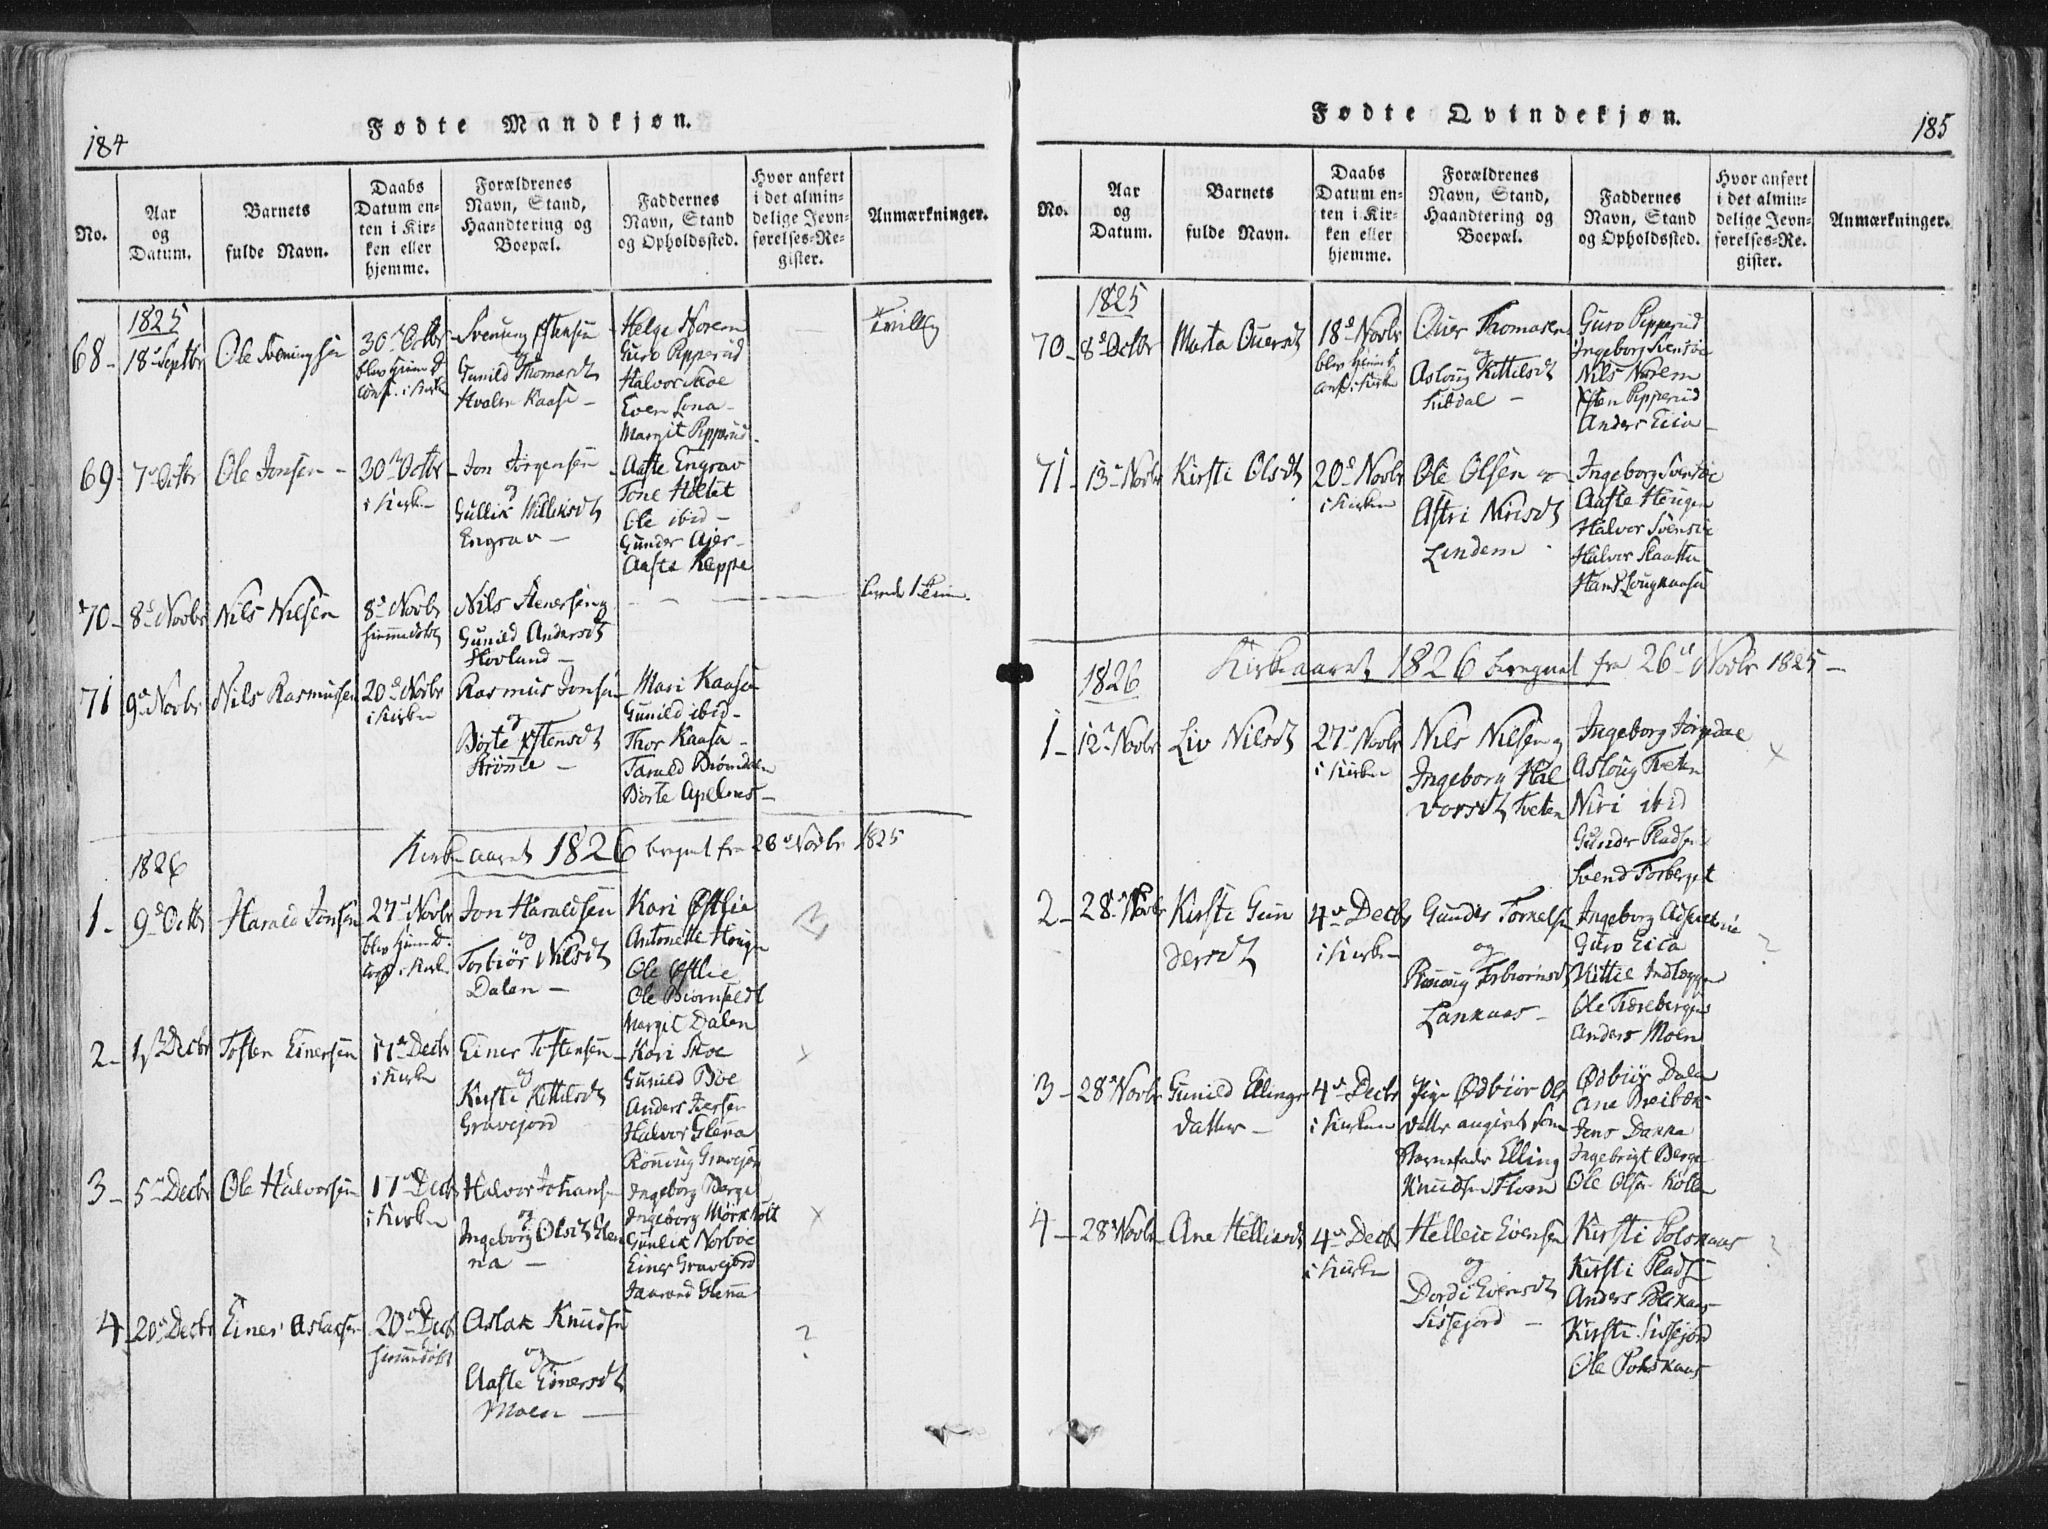 184
Fødte Mandkjøn.
No.
Aar og Datum.
Barnets fulde Navn.
Daabs Datum enten i Kirken eller hjemme.
Forældrenes Navn, Stand, Haandtering og Boepæl.
Faddernes Navn, Stand og Opholdssted.
Hvor anført i det almindelige Jevnførelses-Register.
Anmærkninger.
1825
68 - 18de Septbr
Ole Sveningsen
30te Octbr
i Kirke
Svenung Østensen
og
Gunild Thomasdt
Hvalen Kaasa -
Helge Norem
Guro Pipperud
Halvor Skoe
Even Lona -
Margit Pipperud
Tvilling
69 - 7de Octbr
Ole Jonsen -
30te Octbr
i Kirken
Jon Jørgensen
og
Gullik Killiksdt
Engrav -
Aaste Engrav
Tone Holtet
Ole ibid -
Gunder Ajer -
Aaste Keppe
70 - 8de Novbr
Nils Nilsen
8de Novbr
hiemmedøbt
Nils Stenersen og
Gunild Andersdt
Hovland -
71 9de Novbr
Nils Rasmussen
20de Novbr
i Kirken
Rasmus Jonsen
og
Børte Østensdt
Strømme -
Mari Kaasa
Gunild ibid -
Thor Kaasa -
Tarald Biørndalen
Børte Apelnes -
Kirkeaaret 1826 beregnet fra 26de Novbr 1825
1826
1 - 9de Octbr
Harald Jonsen
27de Novbr
i Kirke
Jon Haraldsen
og
Torbiør Nilsdt
Dalen -
Kari Østlie
Antonette Hougen
Ole Østlie
Ole Biørnfeldt
Margit Dalen
2 - 1ste Decbr
Tosten Einersen
11te Decbr
i Kirken
Einer Tostensen
og
Kirsti Kittilsdt
Gravejord
Kari Skoe
Gunild Bøe
Anders Iversen
Halvor Glenna
Rønnoug Gravejord
×
3 - 5te Decbr
Ole Halvorsen
17de Decbr
i Kirken
Halvor Johansen
og
Ingeborg Olsdt Glenna -
Ingeborg Berge
Ingeborg Mørkholt
Gunlik Norboe
Einer Gravejord
Taarand Glenna
×
4 - 20de Decbr
Einer Aslaksen
20de Decbr
hiemmedøbt
Aslak Knudsen
og
Aaste Einersdt
Moen -
?
185
Fødte Qvindekjøn.
No.
Aar og Datum.
Barnets fulde Navn.
Daabs Datum enten i Kirken eller hjemme.
Forældrenes Navn, Stand, Haandtering og Boepæl.
Faddernes Navn, Stand og Opholdssted.
Hvor anført i det almindelige Jevnførelses-Register.
Anmærkninger.
1825
70 - 8de Octbr
Marta Ouersdt
18de Novbr
i Kirken
Ouer Thomasen
og
Asloug Kittilsdt
Libdal -
Guro Pipperud
Ingeborg Svensøe
Nils Norem
Østen Pipperud
Anders Eica -
71 - 13de Novbr
Kirsti Olsdt
20de Novbr
i Kirken
Ole Olsen og
Astri Nirisdt
Lindem
Ingeborg Svensøe
Aaste Hougen
Halvor Svensøe
Halvor Slaatta
Hans Lougkaasa
Kirkeaaret 1826 beregnet fra 26de Novbr 1825 -
1826
1 - 12te Novbr
Liv Nilsdt
27de Novbr
i Kirken
Nils Nilsen og
Ingeborg Halvorsdt Tveten
Ingeborg Jørpdal
Asloug Tveten
Niri ibid
Gunder Pladsen
Svend Torberget
×
2 - 28de Novbr
Kirsti Gunderdt
4de Decbr
i Kirken
Gunder Torkelsen
og
Rønnoug Torbiørnsdt
Lankaas -
Guro Eica
Kittil Indlæggen
Anders Moen
?
3 - 28de Novbr
Gunild Ellings
datter -
4de Decbr
i Kirken
Pige Ødbiør Ols
datter angivet som
Barnefader Elling
Knudsen Floen
Ødbiør Dalen
Ane Breibæk
Jens Dakka
Ingebrigt Berge
Ole Olsen Kollen
4 - 28de Novbr
Ane Helliksdt
4de Decbr
i Kirken
Helleic Evensen
og
Dordi Evensdt
Sissejord -
Kirsti Polskaas
Kirsti Pladsen
Anders Polskaas
Kirsti Sissejord
Ole Polskaas
?